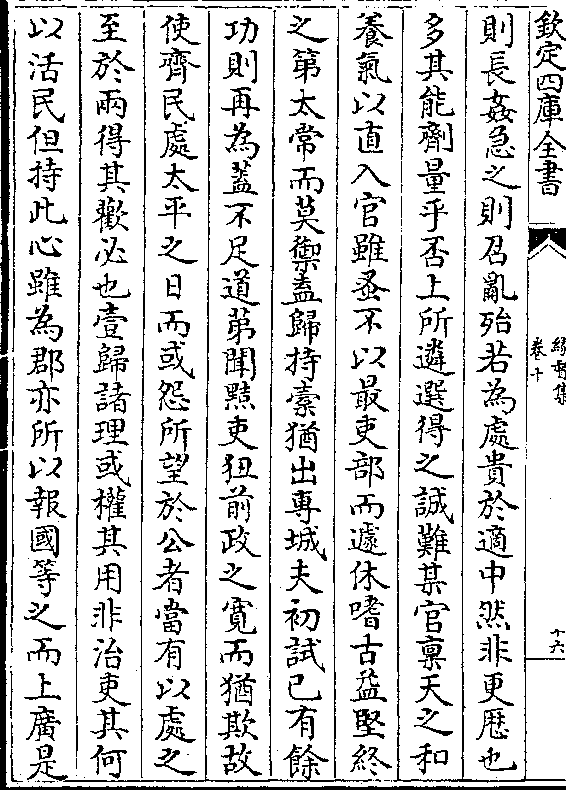 欽定四庫全書
緣督集
卷十
十六
則長姦急之則召亂殆若為處貴於適中然非更歴也
多其能劑量乎否上所遴選得之誠難某官禀天之和
養氣以直入官雖蚤不以最吏部而遽休嗜古益堅終
之第太常而莫禦盍歸持橐猶出專城夫初試已有餘
功則再為蓋不足道苐聞黠吏狃前政之寛而猶欺故
使齊民處太平之日而或怨所望於公者當有以處之
至於兩得其歡必也壹歸諸理或權其用非治吏其何
以活民但持此心雖為郡亦所以報國等之而上廣是